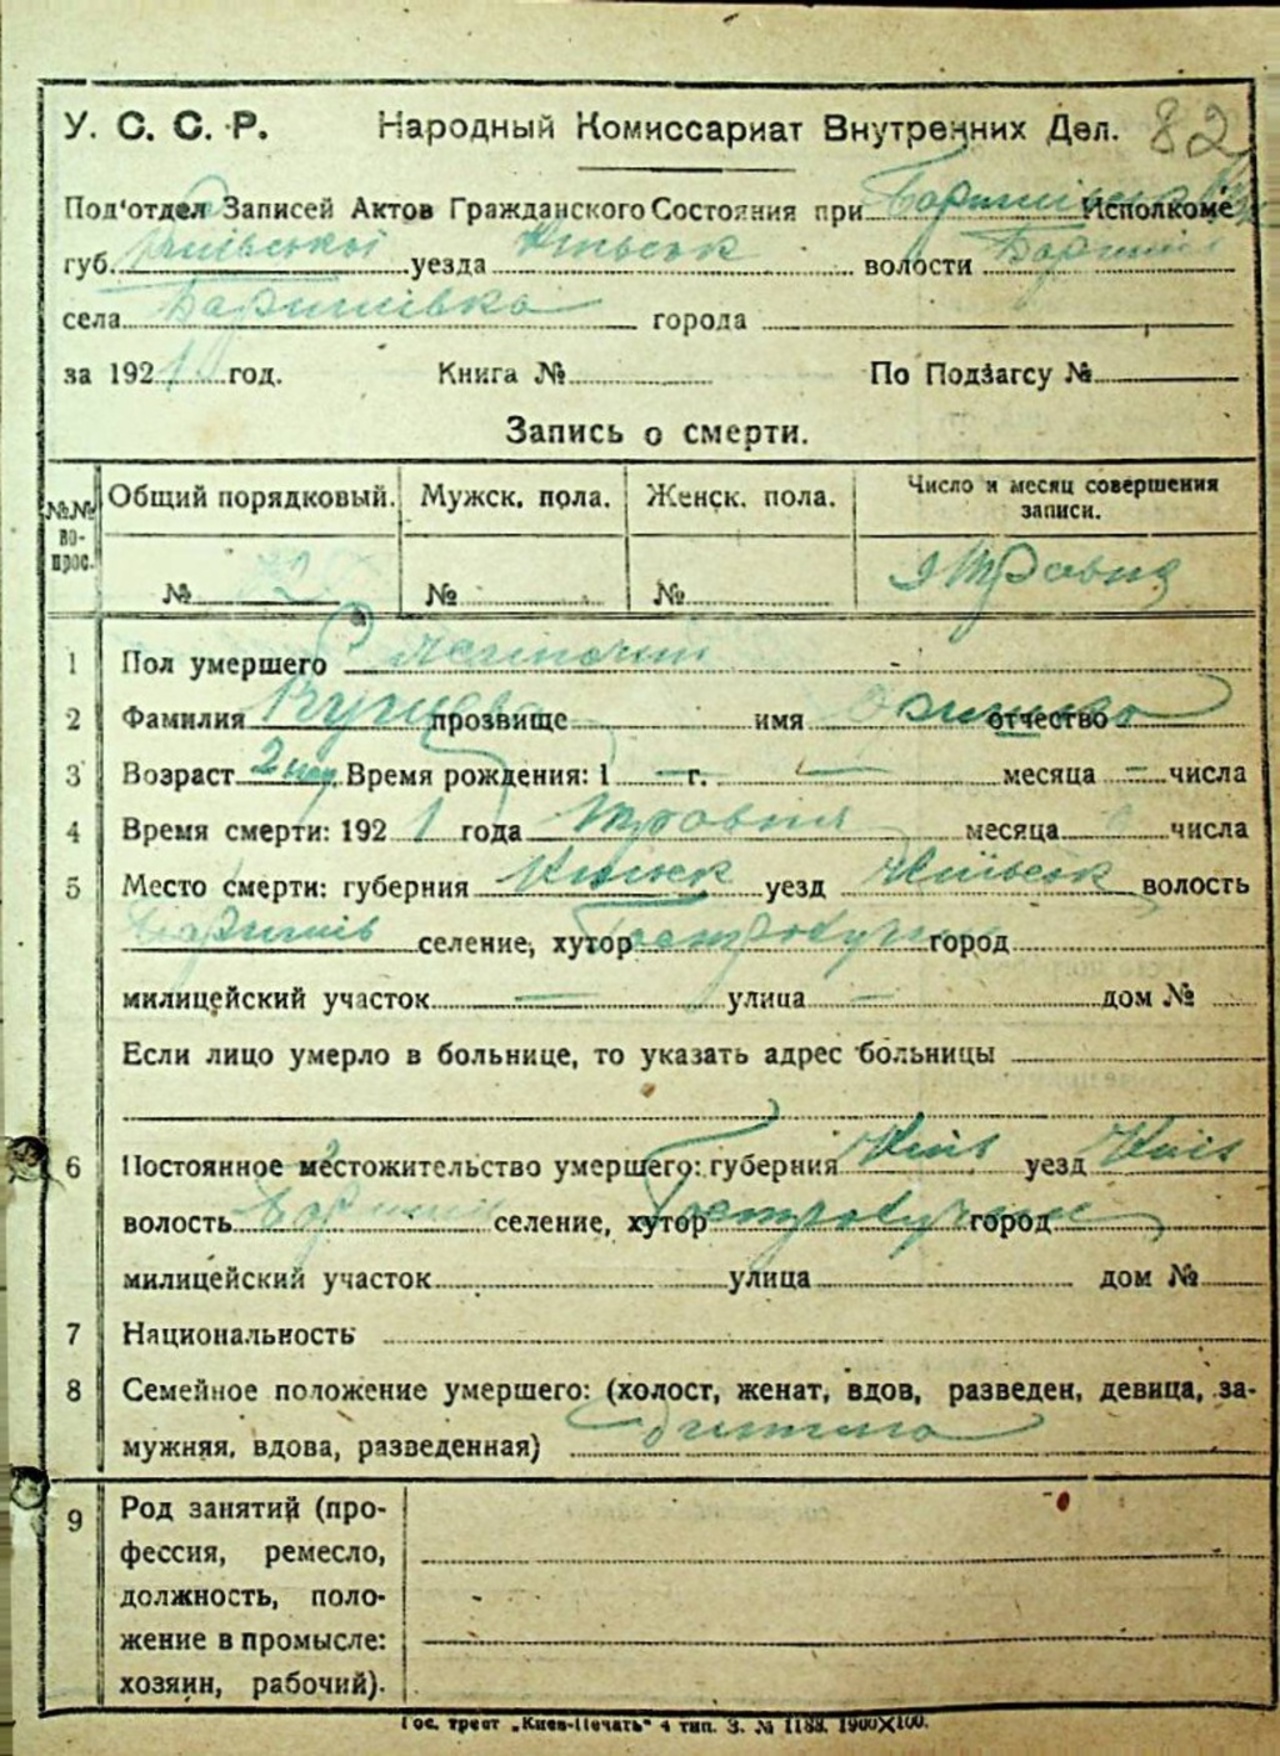 У. С. С. Р. Народный Комиссариат Внутренних Дел. 82
Под'отдел Записей Актов Гражданского Состояния при Исполкоме
губ. Київської уезда Київськ волости Баришів
села Баришівка города
за 1921 год. Книга № По Подзагсу №
Запись о смерти.
№№ вопрос. Общий порядковый. Мужск. пола. Женск. пола. Число и месяц совершения записи.
№ 82 № № Травня
1 Пол умершего
2 Фамилия прозвище имя отчество
3 Возраст 2 Время рождения: 1 — г. — месяца — числа
4 Время смерти: 1921 года Травня месяца числа
5 Место смерти: губерния уезд Київськ волость
Баришів селение, хутор город
милицейский участок — улица — дом №
Если лицо умерло в больнице, то указать адрес больницы
6 Постоянное местожительство умершего: губерния Київ уезд Київ
волость Бариш селение, хутор город
милицейский участок улица дом №
7 Национальность
8 Семейное положение умершего: (холост, женат, вдов, разведен, девица, за-
мужняя, вдова, разведенная) дитина
9 Род занятий (про-
фессия, ремесло,
должность, поло-
жение в промысле:
хозяин, рабочий).
Гос. трест „Киев-Печать" 4 тип. З. № 1188. 1900×100.